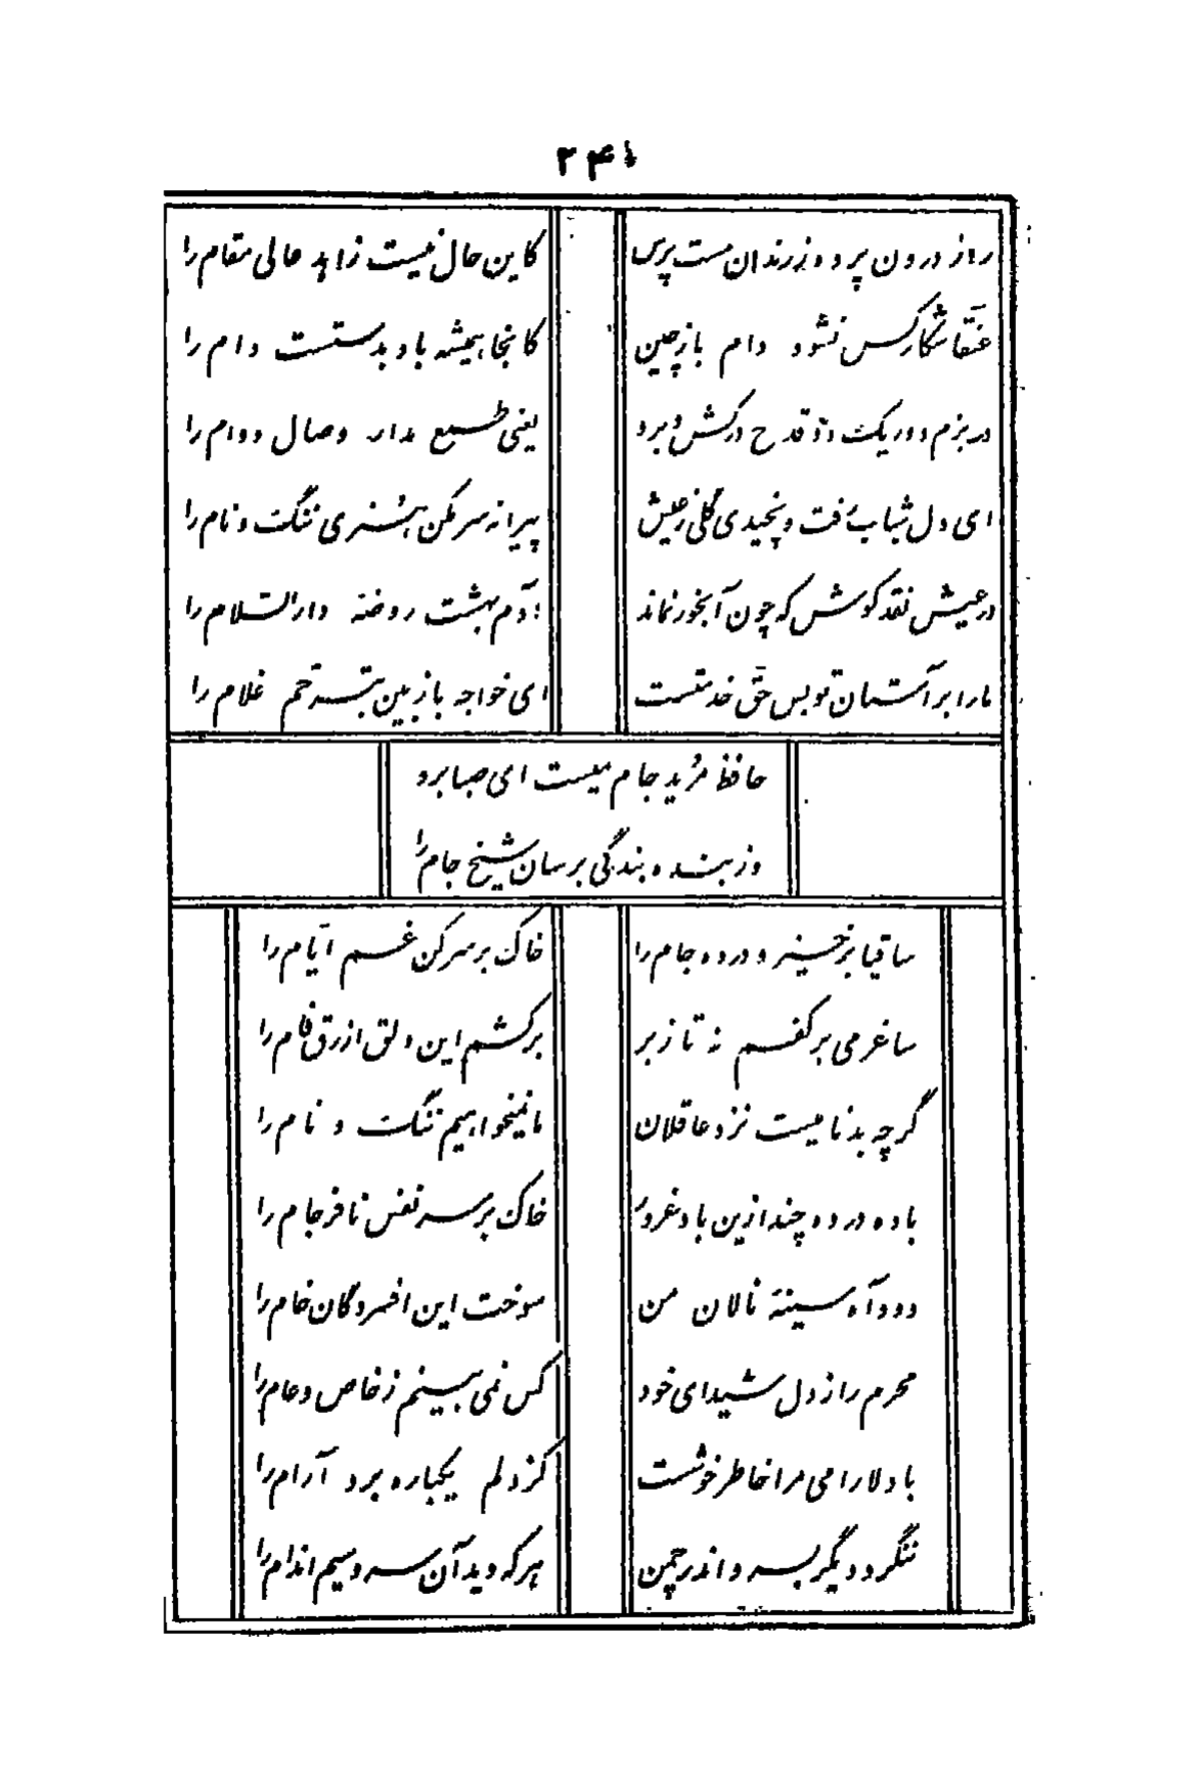 راز درون پرده ز رندان مست پرس
کاین حال نیست زاهد عالی مقام را
عنقا شکار کس نشود دام باز چین
کانجا همیشه باد بدستست دام را
در بزم دور یک دو قدح درکش و برو
یعنی طمع مدار وصال دوام را
ای دل شباب رفت و نچیدی گلی ز عیش
پیرانه سر مکن هنری ننگ و نام را
در عیش نقد کوش که چون آبخور نماند
آدم بهشت روضهٔ دارالسّلام را
ما را بر آستان تو بس حقّ خدمتست
ای خواجه باز بین بترحّم غلام را
حافظ مرید جام میست ای صبا برو
وز بنده بندگی برسان شیخ جام را
ساقیا برخیز و در ده جام را
خاک بر سر کن غم ایّام را
ساغر می بر کفم نه تا ز بر
برکشم این دلق ازرق فام را
گرچه بدنامیست نزد عاقلان
ما نمیخواهیم ننگ و نام را
باده در ده چند ازین باد غرور
خاک بر سر نفس نافرجام را
دود آه سینهٔ نالان من
سوخت این افسردگان خام را
محرم راز دل شیدای خود
کس نمی بینم ز خاص و عام را
با دلارامی مرا خاطر خوشست
کز دلم یکباره برد آرام را
ننگرد دیگر بسرو اندر چمن
هر که دید آن سرو سیم اندام را